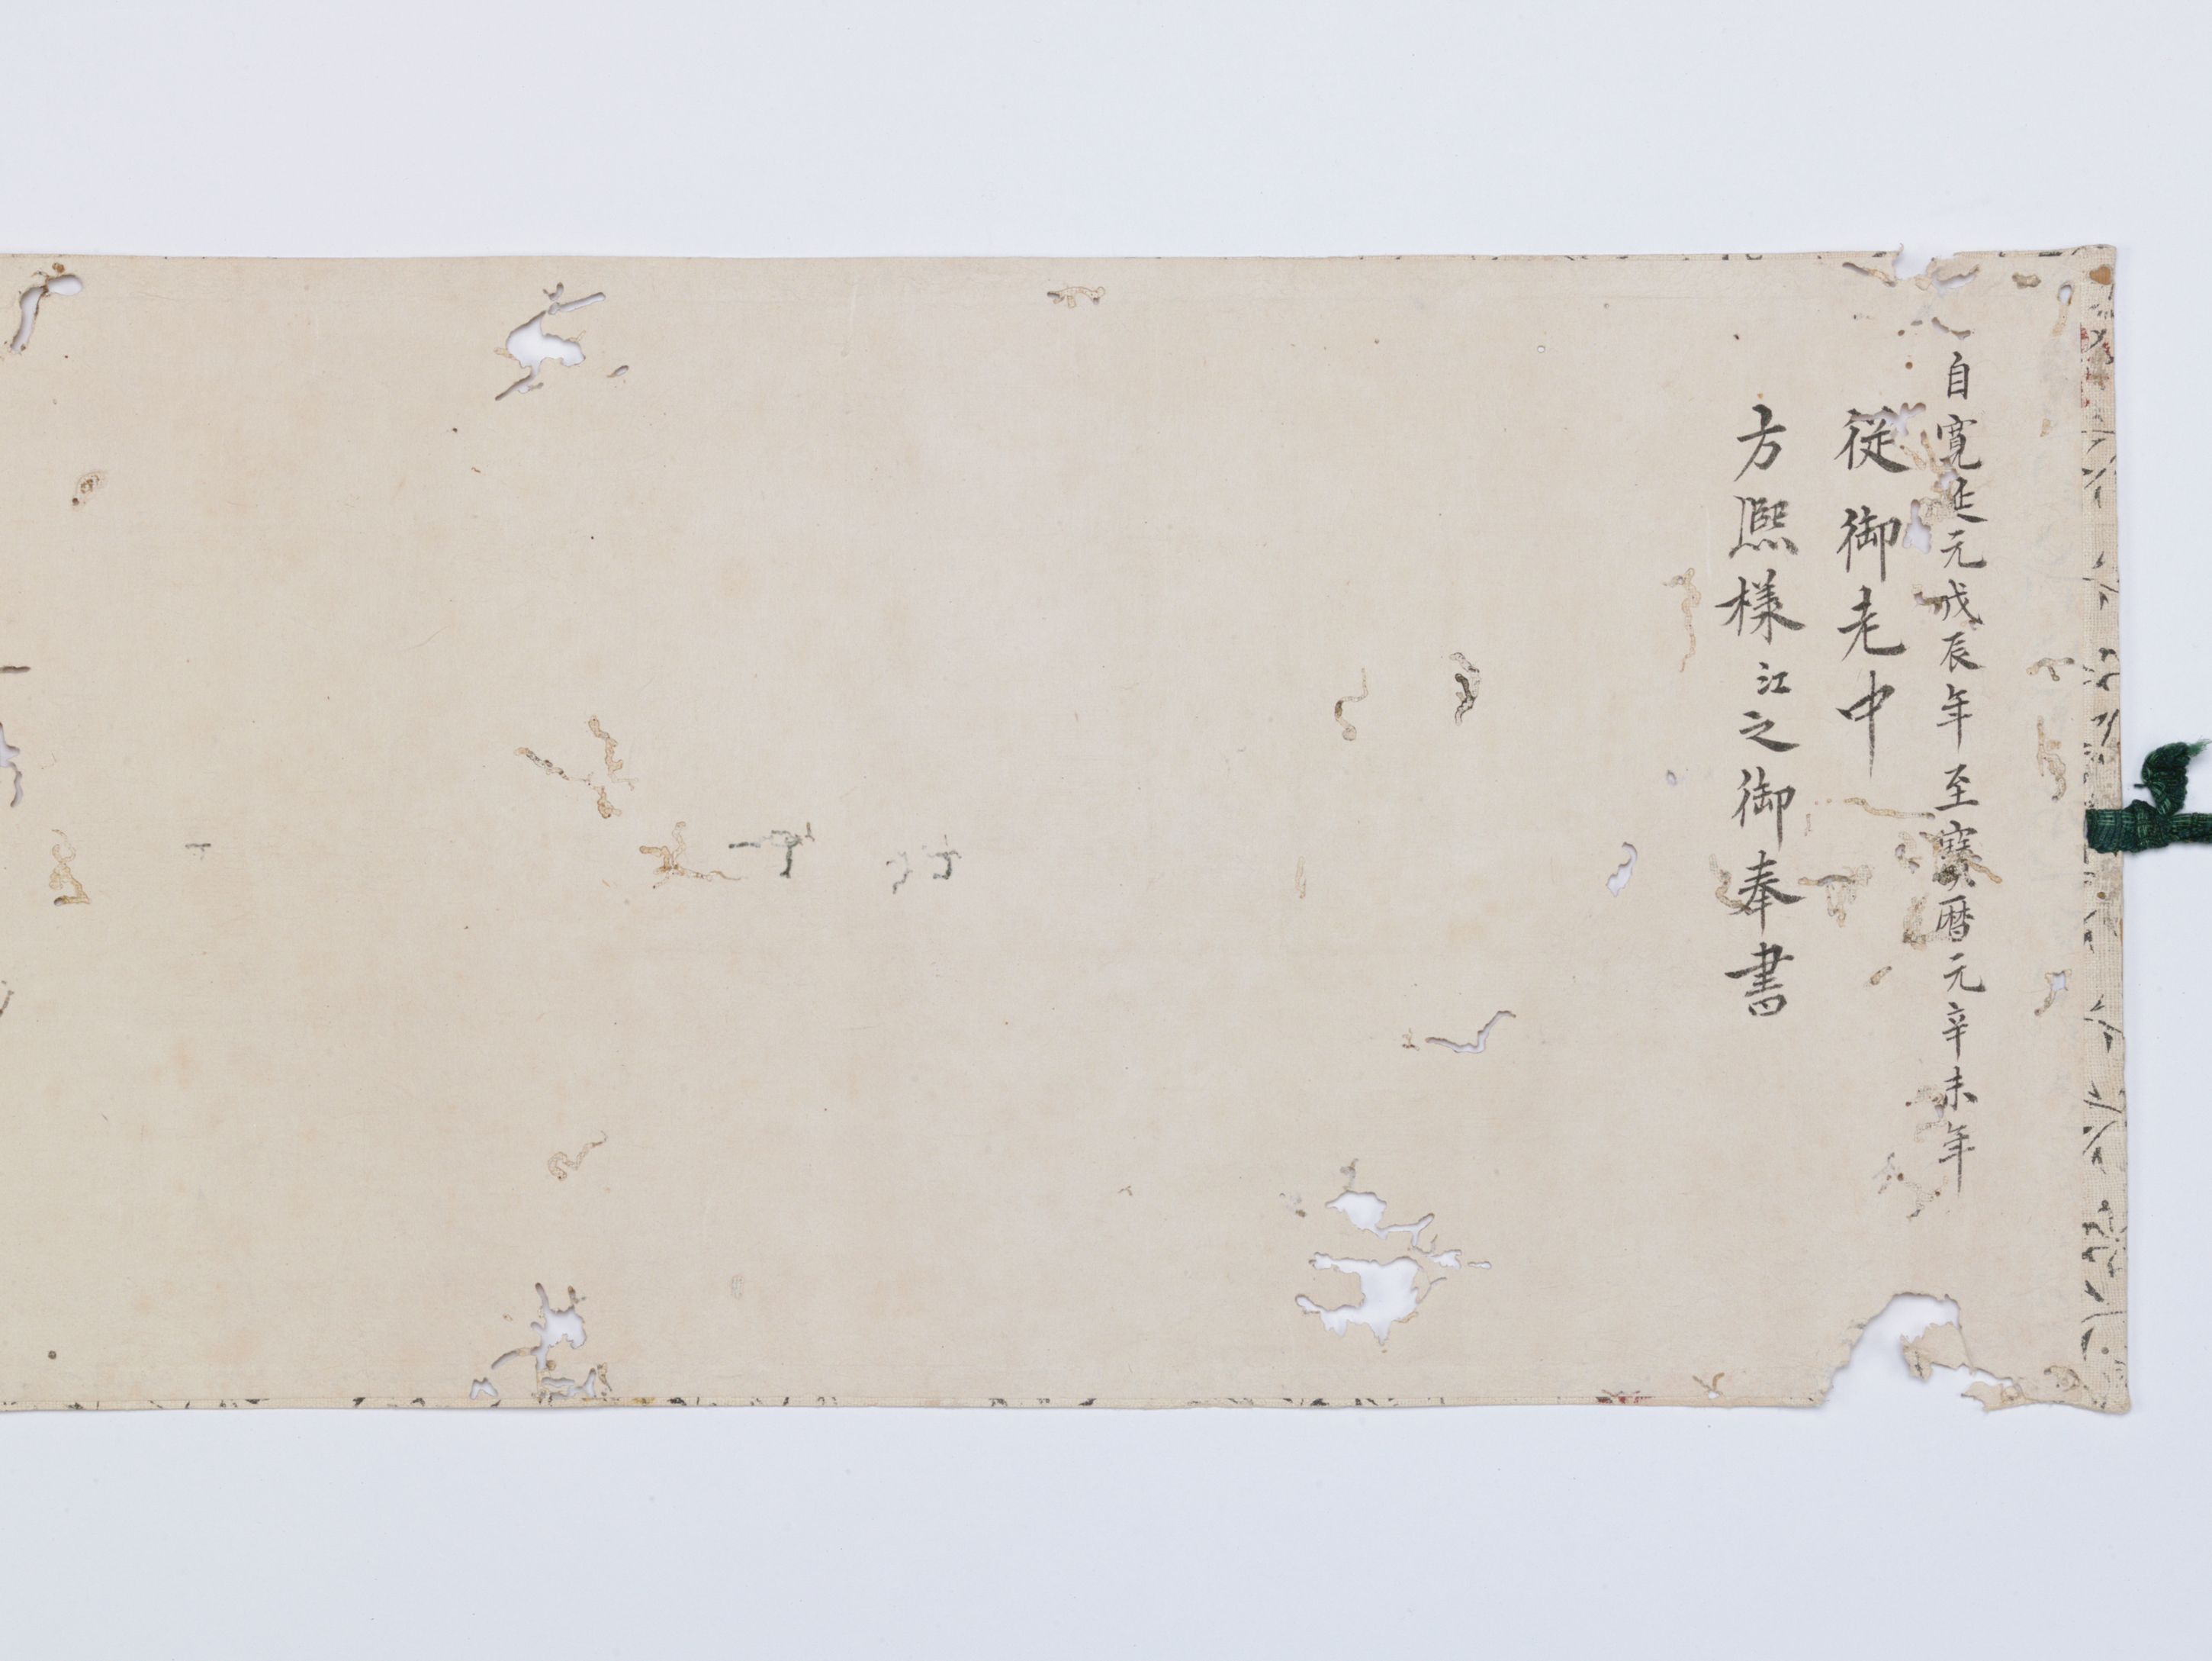 自寛延元戊辰年至寳暦元辛未年
従御老中
方熈様江之御奉書